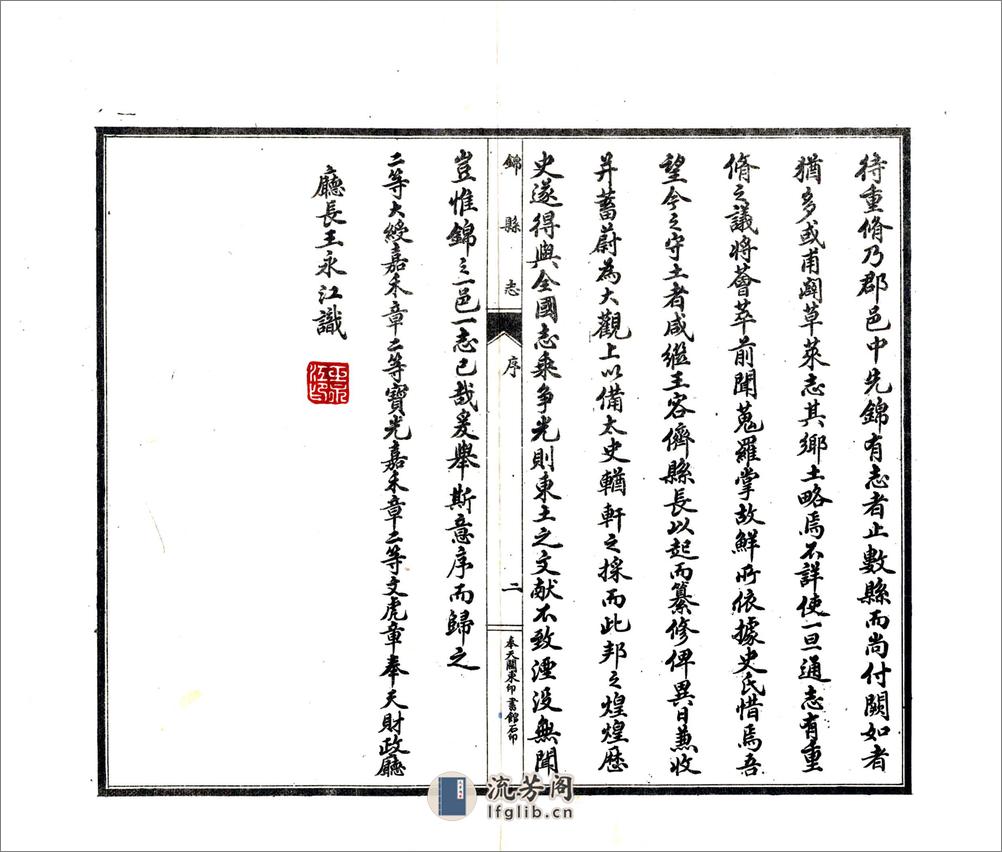 待重脩乃郡邑中先錦有志者止數縣而尚付闕如者
猶多或甫闢草萊志其鄉土略焉不詳使一旦通志有重
脩之議將薈萃前聞蒐羅掌故鮮所依據史氏惜焉吾
望今之守土者咸繼王容儕縣長以起而纂修俾異日兼收
并蓄蔚為大觀上以備太史輶軒之採而此邦之煌煌歷
史遂得與全國志乘爭光則東土之文献不致湮没無聞
錦縣志 序 二 奉天關東印書館石印
豈惟錦之一邑一志已哉爰舉斯意序而歸之
二等大綬嘉禾章二等寶光嘉禾章二等文虎章奉天財政廳
廳長王永江識
王永江印
流芳阁
lfglib.cn